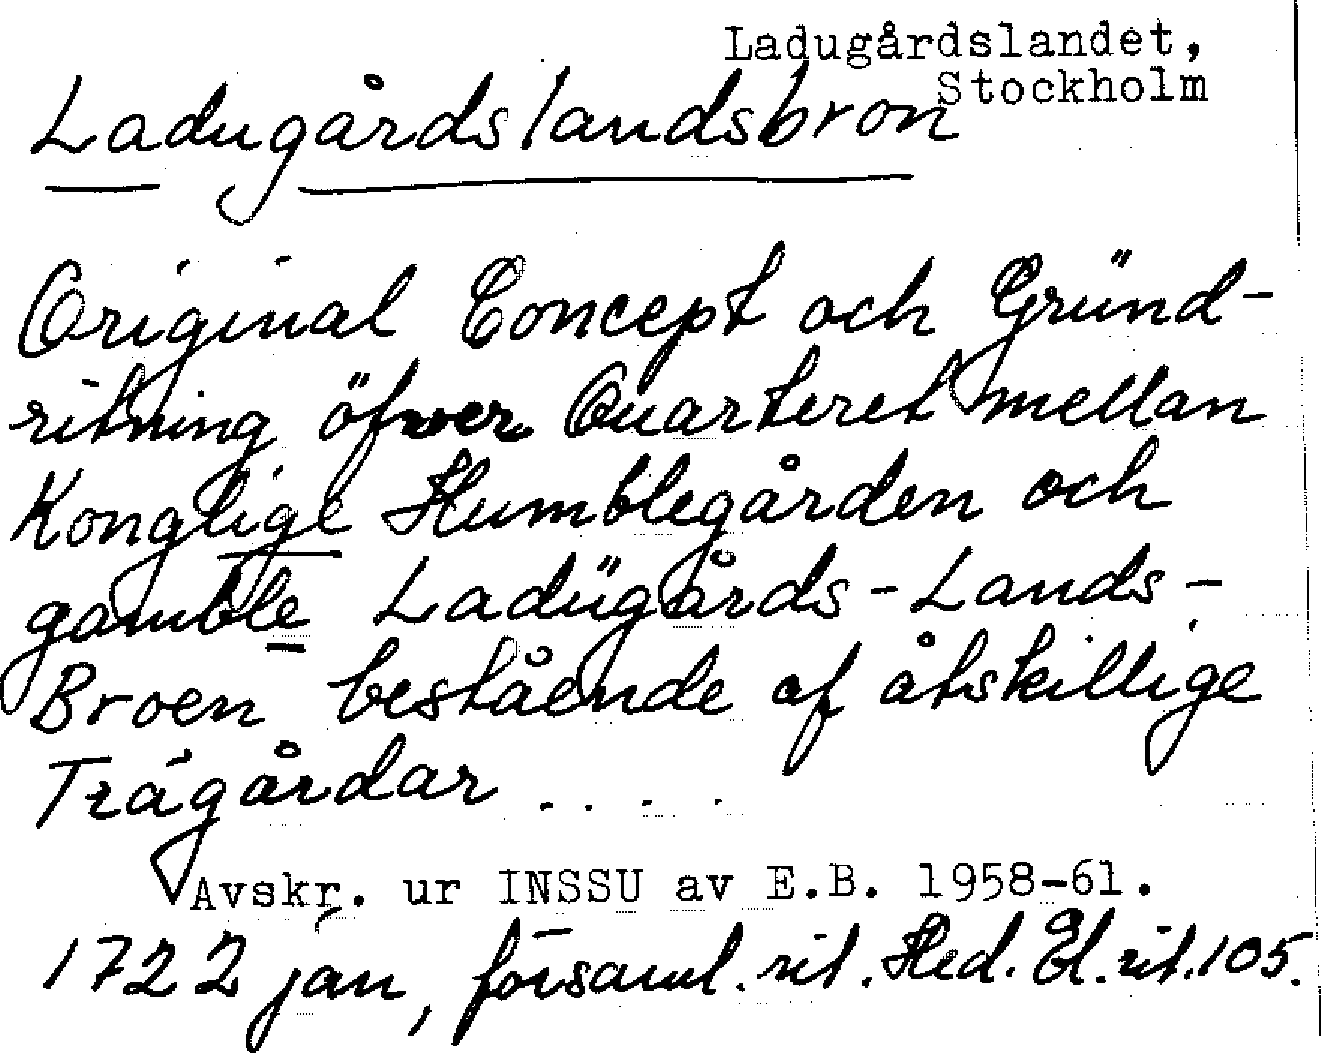 Ladugårdslandet,
Stockholm
Ladugårdslandsbron
Original Concept och Gründ-
ritning öfwer Quarteret mellan
Konglige Humblegården och
gamble Ladügårds-Lands-
Broen bestående af åtskillige
Trägårdar . . . .
Avskr. ur INSSU av E.B. 1958-61.
1722 jan, församl. rit. Hed. El. rit. 105.